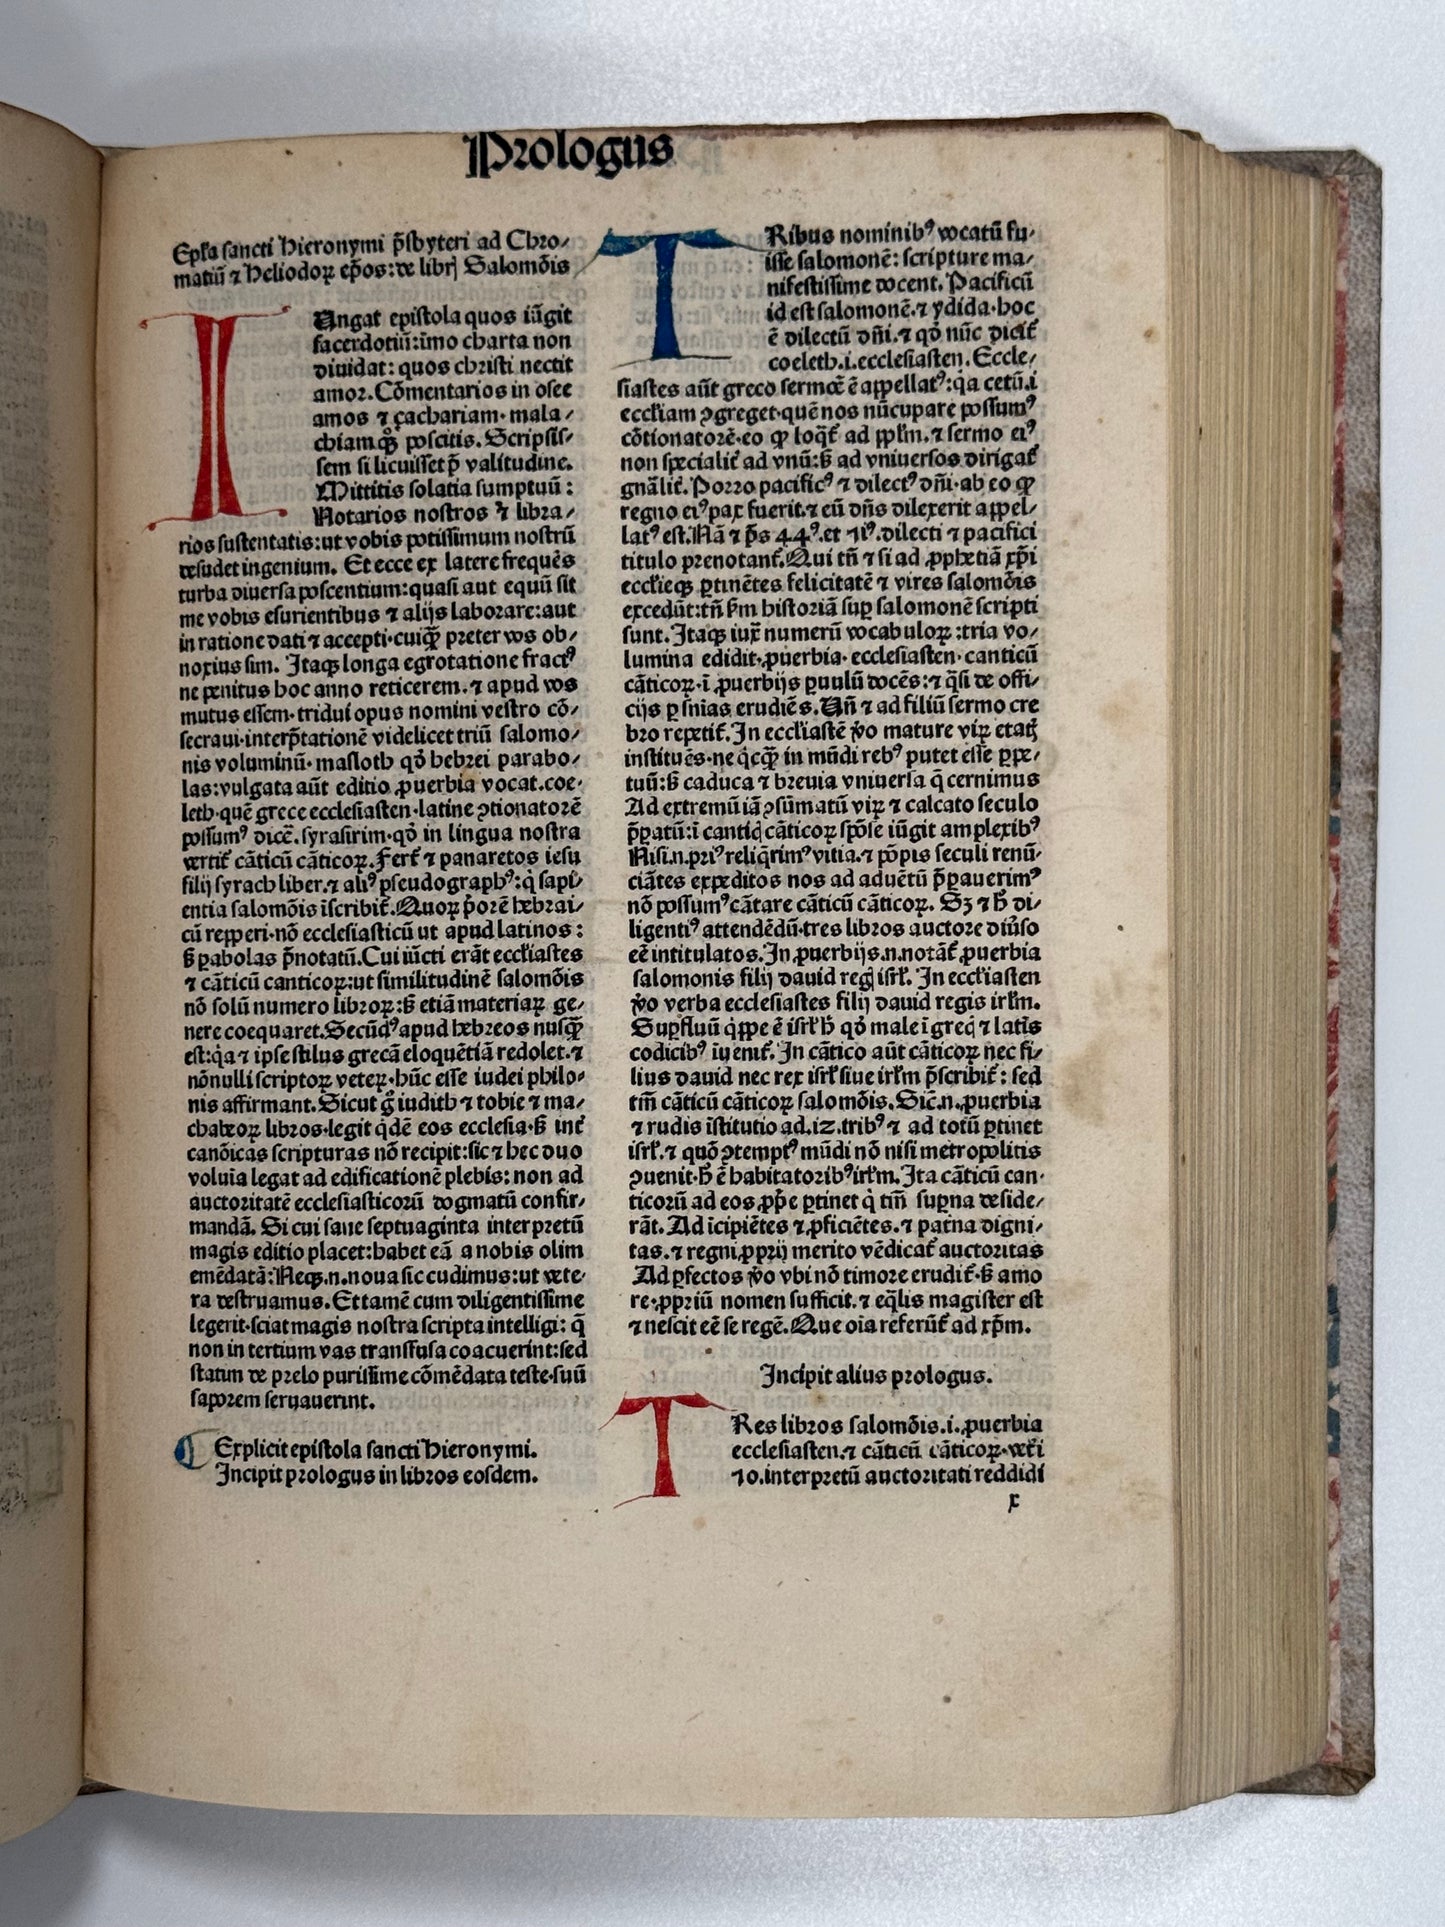 Prologus
Epl'a sancti Hieronymi p̄sbyteri ad Chro⸗
matiū ⁊ Heliodoꝝ ep̄os: de librꝭ Salomōis
IUngat epistola quos iūgit
sacerdotiū: īmo charta non
diuidat: quos christi nectit
amor. Cōmentarios in osee
amos ⁊ çachariam· mala⸗
chiam qͦꝫ poscitis. Scripsis⸗
sem si licuisset p̄ valitudine.
Mittitis solatia sumptuū:
Notarios nostros ⁊ libra⸗
rios sustentatis: ut vobis potissimum nostrū
desudet ingenium. Et ecce ex latere frequēs
turba diuersa poscentium: quasi aut equū sit
me vobis esurientibus ⁊ alijs laborare: aut
in ratione dati ⁊ accepti· cuiqꝫ preter vos ob⸗
noxius sim. Itaqꝫ longa egrotatione fractꝰ
ne penitus hoc anno reticerem. ⁊ apud vos
mutus essem· tridui opus nomini vestro cō⸗
secraui· interp̄tationē videlicet triū salomo⸗
nis voluminū· masloth qd̄ hebrei parabo⸗
las: vulgata aūt editio ꝓuerbia vocat. coe⸗
leth· quē grece ecclesiasten· latine ꝯtionatorē
possumꝰ dicē. syrasirim· qd̄ in lingua nostra
vertit̄ cāticū cāticoꝝ. Fert̄ ⁊ panaretos iesu
filij syrach liber. ⁊ aliꝰ pseudographꝰ: q̇ sapi⸗
entia salomōis īscribit̄. Quoꝝ p̓orē hebrai⸗
cū repperi· nō ecclesiasticū ut apud latinos:
ß ꝑabolas p̄notatū. Cui iūcti erāt eccl'iastes
⁊ cāticū canticoꝝ: ut similitudinē salomōis
nō solū numero libroꝝ: ß etiā materiaꝝ ge⸗
nere coequaret. Secūdꝰ apud hebreos nusqꝫ
est: q̇a ⁊ ipse stilus grecā eloquētiā redolet. ⁊
nōnulli scriptoꝝ veteꝝ· hūc esse iudei philo⸗
nis affirmant. Sicut gͦ iudith ⁊ tobie ⁊ ma⸗
chabeoꝝ libros· legit q̇dē eos ecclesia· ß int̓
canōicas scripturas nō recipit: sic ⁊ hec duo
voluīa legat ad edificationē plebis: non ad
auctoritatē ecclesiasticorū dogmatū confir⸗
mandā. Si cui sane septuaginta interpretū
magis editio placet: habet eā a nobis olim
emēdatā: Neqꝫ. n. noua sic cudimus: ut vete⸗
ra destruamus. Et tamē cum diligentissime
legerit· sciat magis nostra scripta intelligi: q̄
non in tertium vas transfusa coacuerint: sed
statim de prelo purissime cōmēdata teste· suū
saporem seruauerint.
¶ Explicit epistola sancti Hieronymi.
Incipit prologus in libros eosdem.
TRibus nominibꝰ vocatū fu⸗
isse salomonē: scripture ma⸗
nifestissime docent. Pacificū
id est salomonē. ⁊ ydida· hoc
ē dilectū dn̄i. ⁊ qd̄ nūc dicit̄
coeleth. i. ecclesiasten. Eccle⸗
siastes aūt greco sermōe ē appellatꝰ: q̇a cetū. i
eccl'iam ꝯgreget· quē nos nūcupare possumꝰ
cōtionatorē· eo ꝙ loq̇t̄ ad pplm̄. ⁊ sermo eiꝰ
non specialit̓ ad vnū: ß ad vniuersos dirigat̄
gnāl'it̓. Porro pacificꝰ ⁊ dilectꝰ dn̄i· ab eo ꝙ
regno eiꝰ pax fuerit. ⁊ eū dn̄s dilexerit appel⸗
latꝰ est. Nā ⁊ p̄s 44ꝰ. et 71ꝰ. dilecti ⁊ pacifici
titulo prenotant̄. Qui tn̄ ⁊ si ad ꝓphetiā xp̄i
eccl'ieqꝫ ꝑtinētes felicitatē ⁊ vires salomōis
excedūt: tn̄ ßm historiā suꝑ salomonē scripti
sunt. Itaqꝫ iux̄ numerū vocabuloꝝ: tria vo⸗
lumina edidit. ꝓuerbia· ecclesiasten· canticū
cāticoꝝ· ī ꝓuerbijs ꝑuulū docēs: ⁊ q̇si de offi⸗
cijs ꝑ sn̄ias erudiēs. Un̄ ⁊ ad filiū sermo cre
bro repetit̄. In eccl'iastē v̓o mature viꝝ etatꝭ
instituēs· ne q̇cqꝫ in mūdi rebꝰ putet esse ꝑpe⸗
tuū: ß caduca ⁊ breuia vniuersa q̄ cernimus
Ad extremū iā ꝯsūmatū viꝝ ⁊ calcato seculo
p̄ꝑatū: ī cantic̄ cāticoꝝ spōse iūgit amplexibꝰ
Nisi. n. priꝰ reliq̄rimꝰ vitia. ⁊ pōpis seculi renū⸗
ciātes expeditos nos ad aduētū p̄ꝑauerimꝰ
nō possumꝰ cātare cāticū cāticoꝝ. Sꝫ ⁊ h̄ di⸗
ligentiꝰ attendēdū· tres libros auctore diūso
eē intitulatos. In ꝓuerbijs. n. notāt̄ ꝓuerbia
salomonis filij dauid regꝭ isrl'. In eccl'iasten
v̓o verba ecclesiastes filij dauid regis irl'm.
Suꝑfluū q̇ppe ē isrl' h̄ qd̄ male ī grecꝭ ⁊ latīs
codicibꝰ īuenit̄. In cātico aūt cāticoꝝ nec fi⸗
lius dauid nec rex isrl' siue irl'm p̄scribit̄: sed
tm̄ cāticū cāticoꝝ salomōis. Sic̄. n. ꝓuerbia
⁊ rudis īstitutio ad. 12. tribꝰ ⁊ ad totū ꝑtinet
isrl'. ⁊ quō ꝯtemptꝰ mūdi nō nisi metropolitis
ꝯuenit· h̄ ē habitatoribꝰ irl'm. Ita cāticū can⸗
ticorū ad eos ꝓpe ꝑtinet q̇ tm̄ suꝑna deside⸗
rāt. Ad īcipiētes ⁊ ꝓficiētes. ⁊ pat̓na digni⸗
tas. ⁊ regni ꝓprij merito vēdicat̄ auctoritas
Ad ꝑfectos v̓o vbi nō timore erudit̄· ß amo
re· ꝓpriū nomen sufficit. ⁊ eq̄lis magister est
⁊ nescit eē se regē. Que oīa referūt̄ ad xp̄m.
Incipit alius prologus.
TRes libros salomōis. i. ꝓuerbia
ecclesiasten. ⁊ cāticū cāticoꝝ· vet̓i
70. interpretū auctoritati reddidi
x